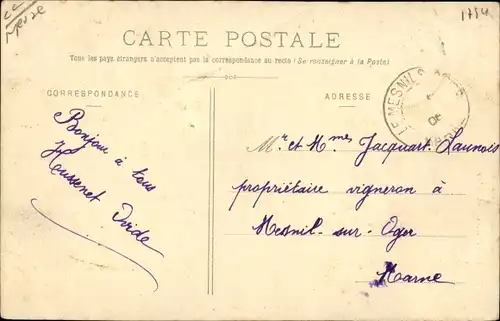 1754
CARTE POSTALE
Tous les pays étrangers n'acceptent pas la correspondance au recto (Se renseigner à la Poste)
CORRESPONDANCE
ADRESSE
LE MESNIL S
08
Bonjour à tous
Houssenet Ovide
Mr et Mmes Jacquart-Launois
propriétaire vigneron à
Mesnil-sur-Oger
Marne